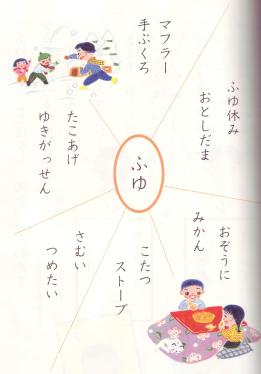 ふゆ休み
おとしだま
マフラー
手ぶくろ
たこあげ
ゆきがっせん
ふゆ
おぞうに
みかん
こたつ
ストーブ
さむい
つめたい